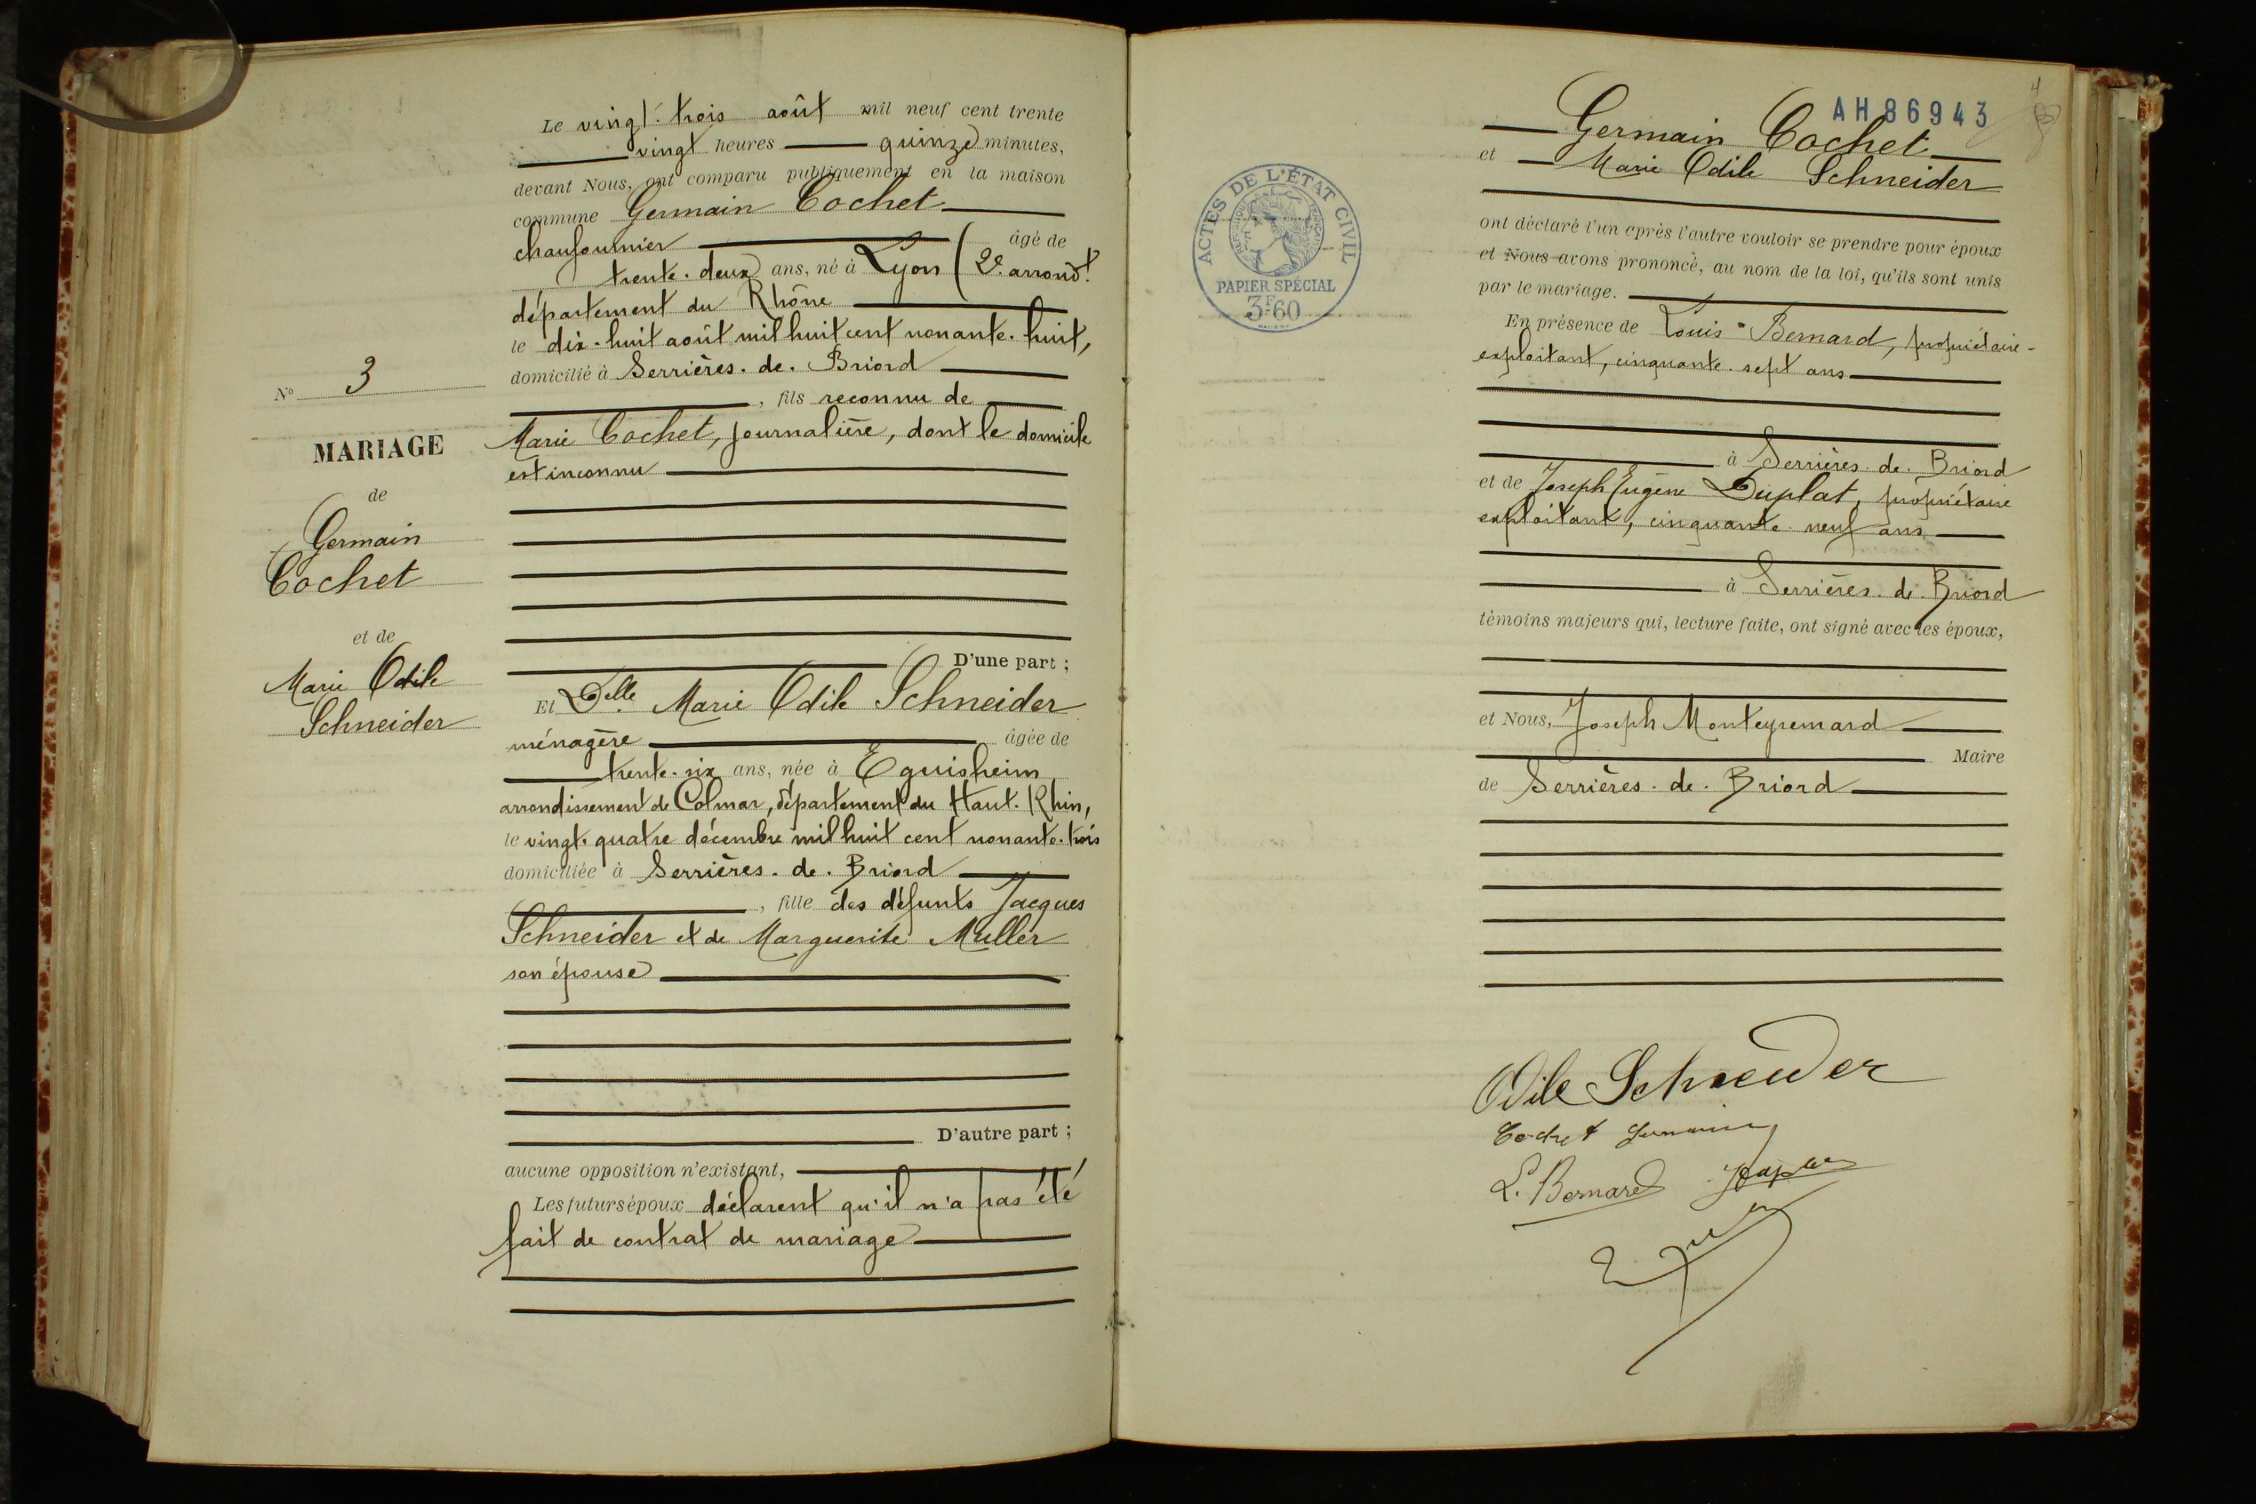 Le vingt-trois août mil neuf cent trente
vingt heures quinze minutes,
devant Nous, ont comparu publiquement en la maison
commune Germain Cochet
chaufournier âgé de
trente-deux ans, né à Lyon (2e arrondt
département du Rhône
le dix-huit août mil huit cent nonante-huit,
domicilié à Serrières-de-Briord
, fils reconnu de
Marie Cochet, journalière, dont le domicile
est inconnu
D'une part ;
Et Delle Marie Odile Schneider
ménagère âgée de
trente-six ans, née à Eguisheim
arrondissement de Colmar, département du Haut-Rhin,
le vingt-quatre décembre mil huit cent nonante-trois
domiciliée à Serrières-de-Briord
, fille des défunts Jacques
Schneider et de Marguerite Muller
son épouse
D'autre part ;
aucune opposition n'existant,
Les futurs époux déclarent qu'il n'a pas été
fait de contrat de mariage
No 3
MARIAGE
de
Germain
Cochet
et de
Marie Odile
Schneider
AH86943
4
Germain Cochet
et Marie Odile Schneider
ont déclaré l'un après l'autre vouloir se prendre pour époux
et Nous avons prononcé, au nom de la loi, qu'ils sont unis
par le mariage.
En présence de Louis Bernard, propriétaire-
exploitant, cinquante-sept ans
à Serrières-de-Briord
et de Joseph Eugène Duplat, propriétaire
exploitant, cinquante-neuf ans
à Serrières-de-Briord
témoins majeurs qui, lecture faite, ont signé avec les époux,
et Nous, Joseph Monteyremard
Maire
de Serrières-de-Briord
ACTES DE L'ÉTAT CIVIL
RÉPUBLIQUE FRANÇAISE
PAPIER SPÉCIAL
3F60
Odile Schneider
Cochet Germain
L. Bernard